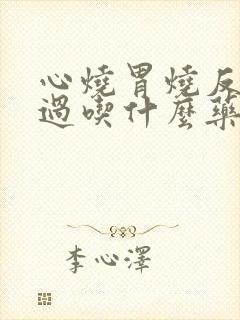 心燒胃燒反
過喫什麼藥
李心澤